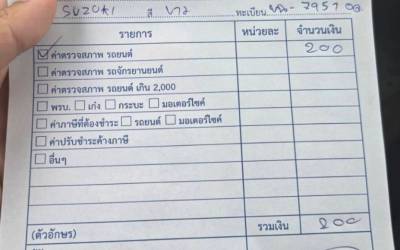 SUZUKI สี ขาว ทะเบียน - 7957
รายการ หน่วยละ จำนวนเงิน
☑ ค่าตรวจสภาพ รถยนต์ 200
☐ ค่าตรวจสภาพ รถจักรยานยนต์
☐ ค่าตรวจสภาพ รถยนต์ เกิน 2,000
☐ พรบ. ☐ เก๋ง ☐ กระบะ ☐ มอเตอร์ไซค์
☐ ค่าภาษีที่ต้องชำระ ☐ รถยนต์ ☐ มอเตอร์ไซค์
☐ ค่าปรับชำระค้างภาษี
☐ อื่นๆ
(ตัวอักษร) รวมเงิน 200